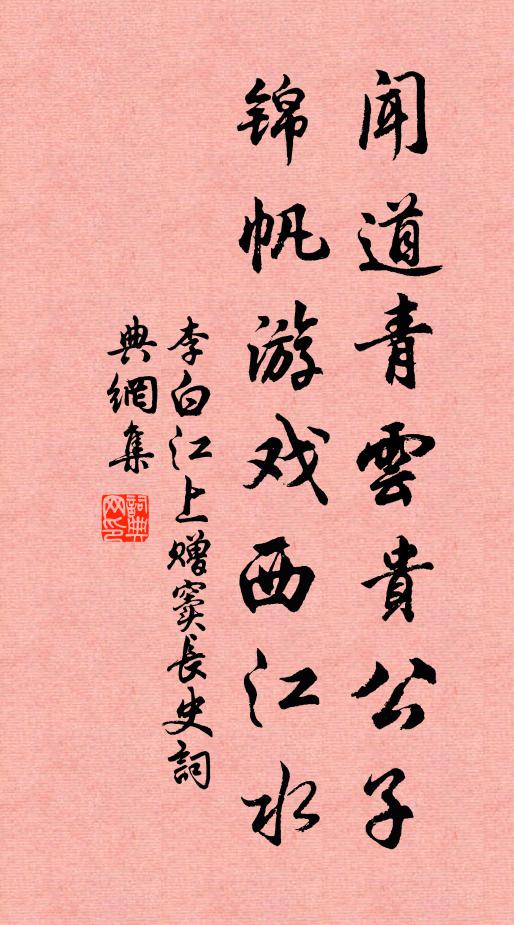 闻道青雲貴公子
锦帆游戏西江水
李白江上赠窦长史詞
典網集
詞典网印